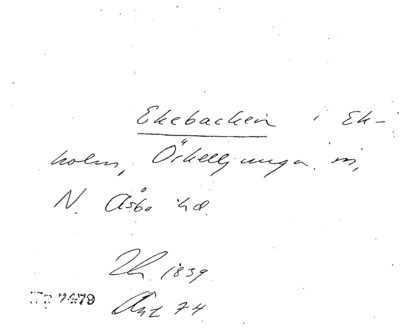 Ekebacken i Ek-
holm, Örkelljunga sn,
N. Åsbo hd.
Lh. 1839
Ant 74
2479